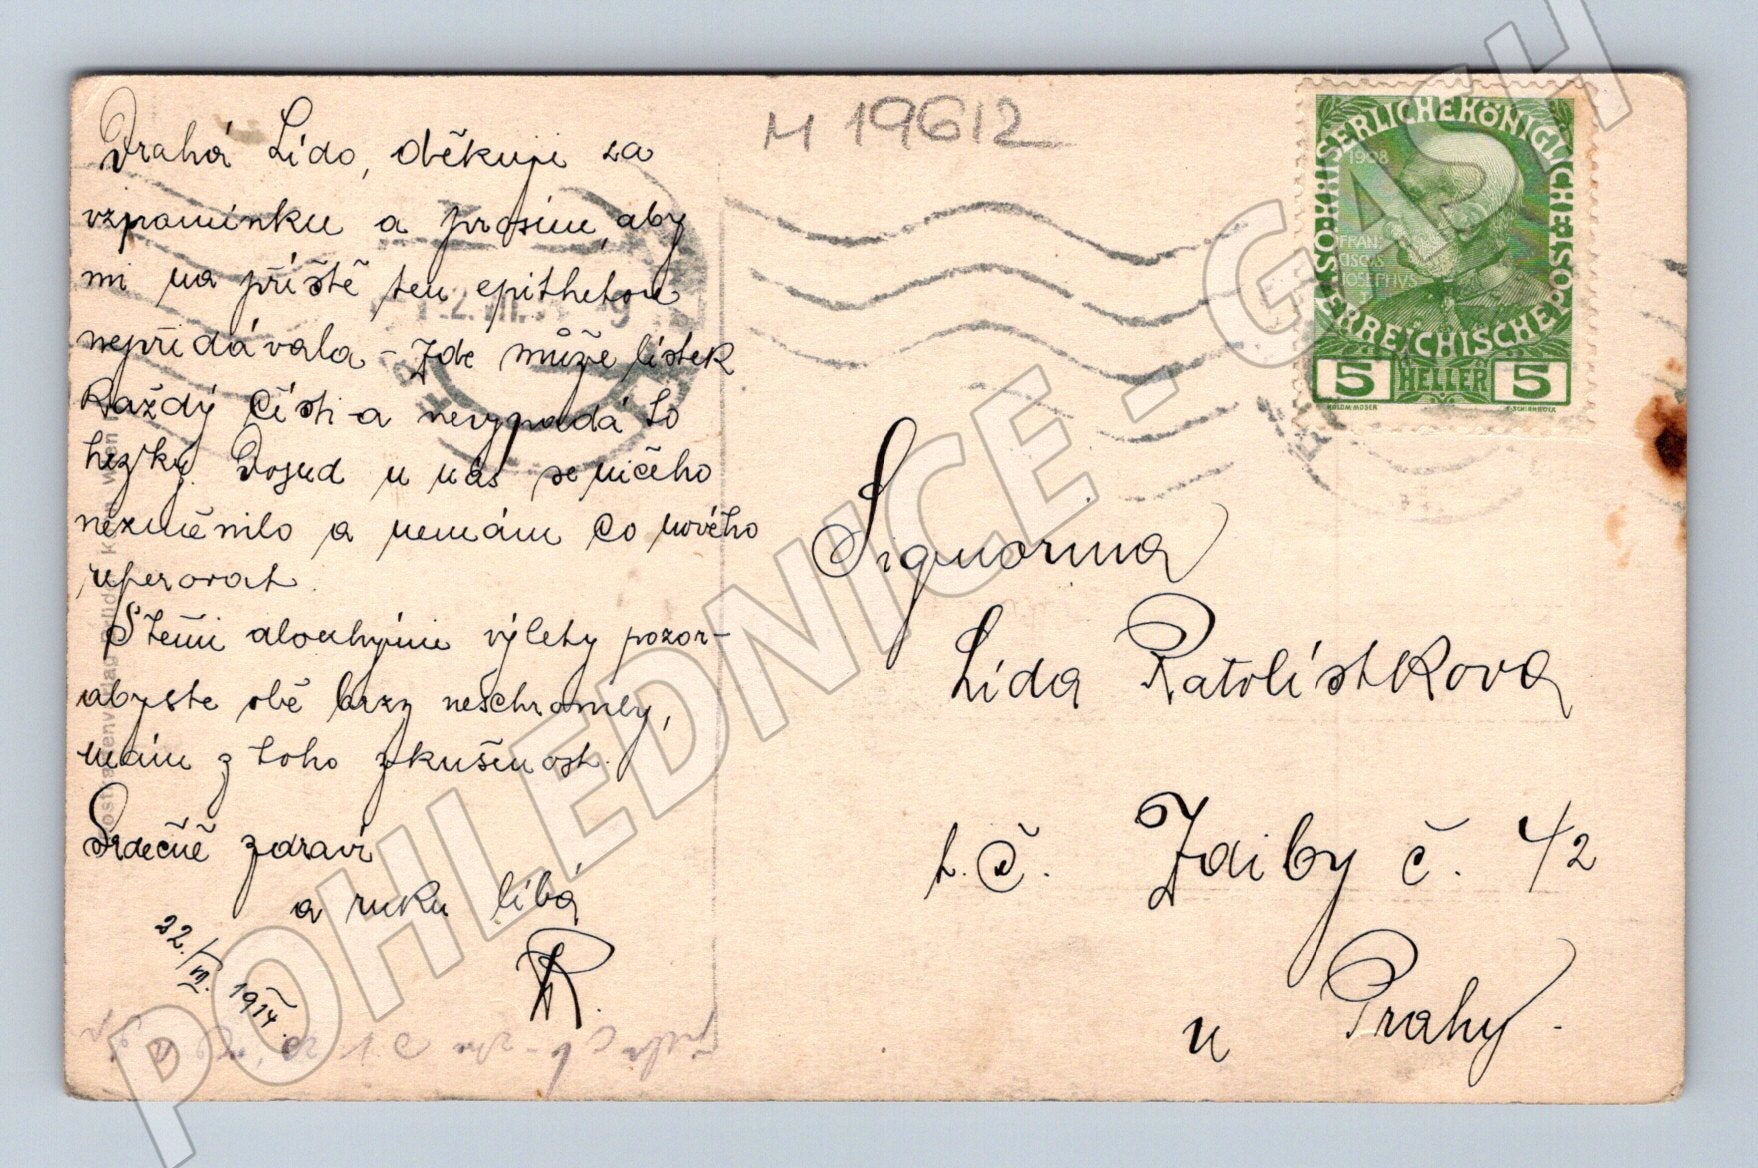 M 19612
Drahá Lído, děkuji za
vzpomínku a prosím, aby
mi na příště ten epitheton
nepřidávala – Zde může lístek
každý čísti a nevypadá to
hezky. Dosud u nás se ničeho
nezměnilo a nemám co nového
referovat.
S těmi dlouhými výlety pozor –
abyste obě brzy neschromly,
mám z toho zkušenost.
Srdečně zdraví
a ruku líbá
R.
22./III. 1914.
KAISERLICHE KÖNIGLICHE ÖSTERREICHISCHE POST
1908
FRAN
CISCVS
IOSEPHVS
I
5 HELLER 5
KOLOM.MOSER F.SCHIRNBÖCK
Signorina
Lída Ratolístková
t. č. Zdiby č. 42
u Prahy.
POHLEDNICE - GASH